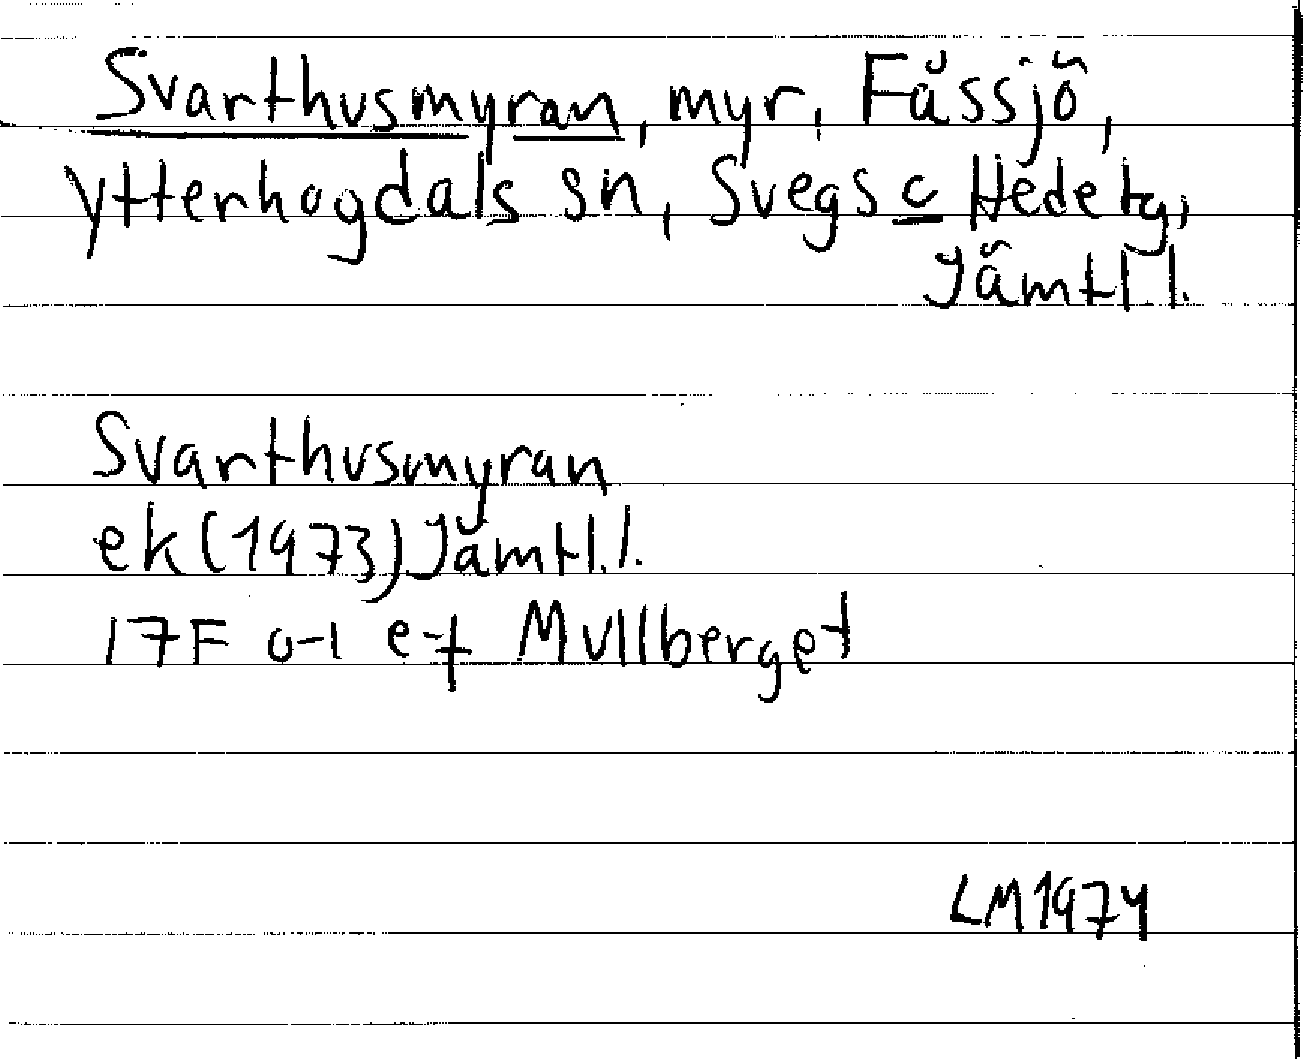 Svarthusmyran, myr, Fåssjö,
Ytterhogdals sn, Svegs o Hede tg,
Jämtl l.
Svarthusmyran
ek (1973) Jämtl. l.
17F 0-1 e-f Mullberget
LM 1974